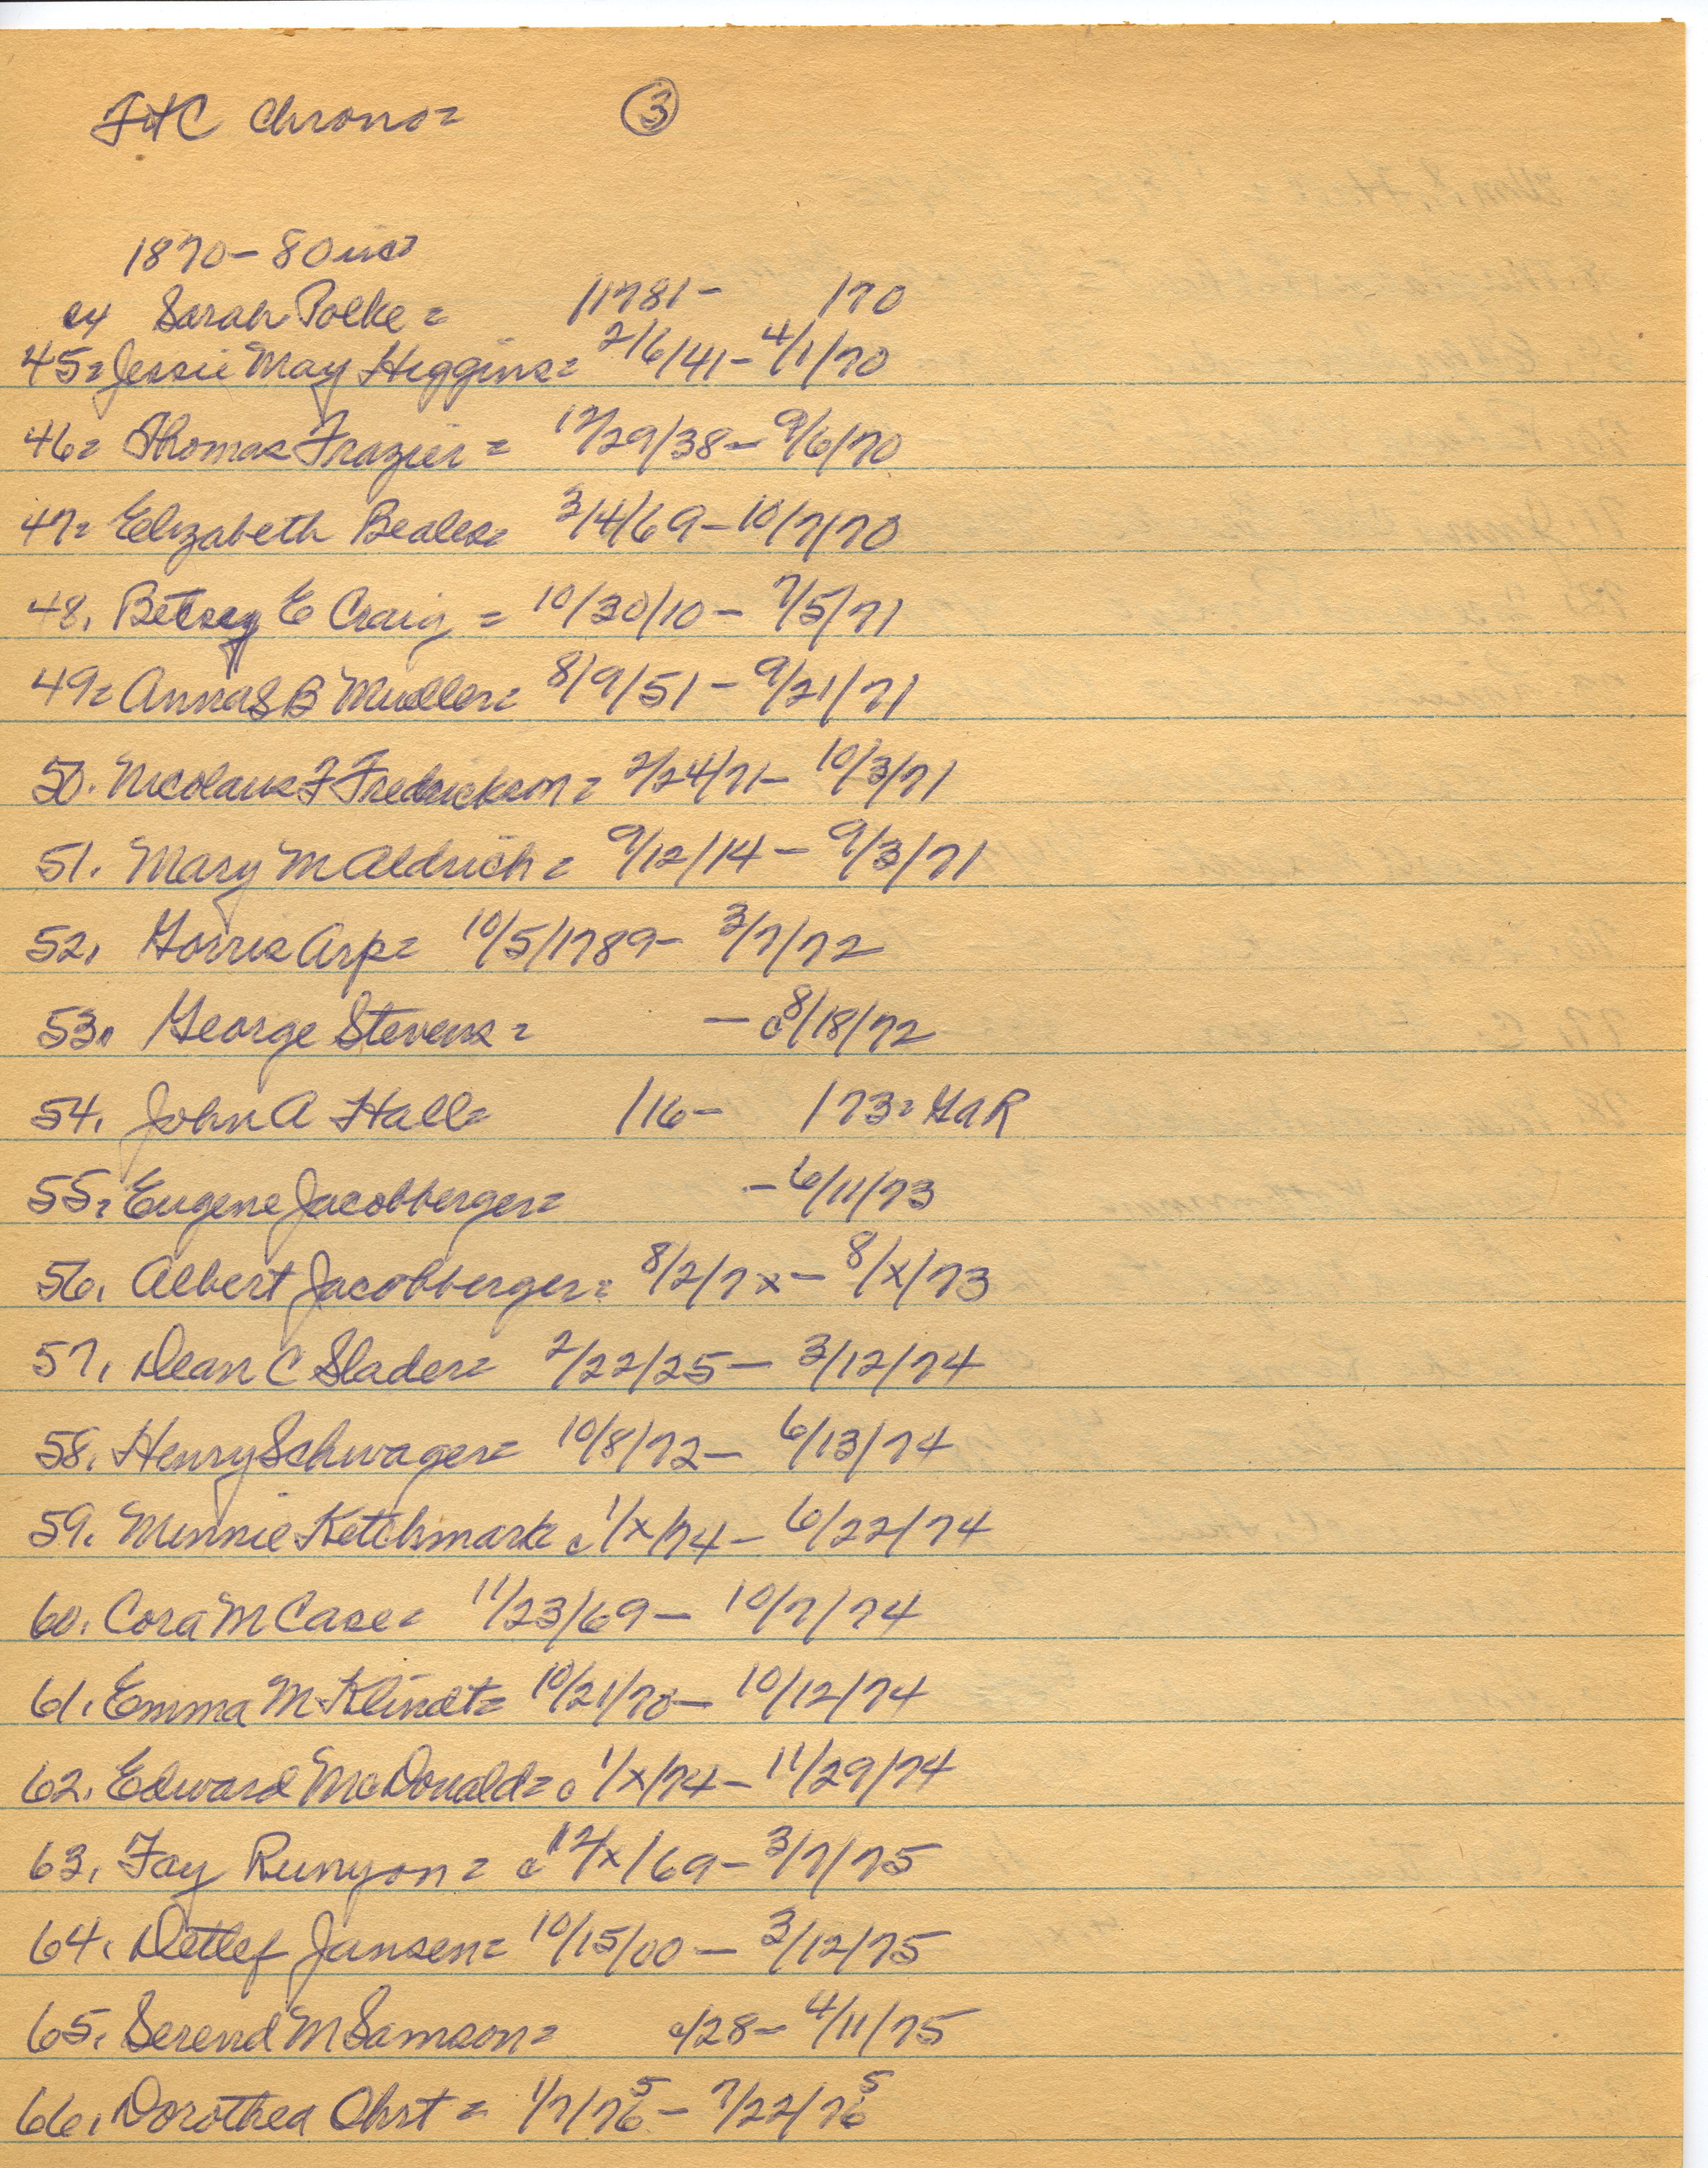 FHC Chrono= ③
1870-80 inc=
ex Sarah Polke = /1781- /70
45= Jessie May Higgins= 2/6/41- 4/1/70
46= Thomas Frazier = 12/29/38- 9/6/70
47= Elizabeth Beales= 3/4/69- 10/7/70
48. Betsey E Craig = 10/30/10- 7/5/71
49= Anna S B Mueller= 8/9/51- 9/21/71
50. Nicolaus F Fredrickson= 2/24/71- 10/3/71
51. Mary M Aldrich= 9/12/14- 9/3/71
52. Gorris Arp= 10/5/1789- 3/7/72
53. George Stevens= - c8/18/72
54. John A Hall= /16- /73= GAR
55= Eugene Jacobberger= - 6/11/73
56. Albert Jacobberger= 8/2/7x- 8/x/73
57. Dean C Slader= 2/22/25- 3/12/74
58. Henry Schwager= 10/8/72- 6/13/74
59. Minnie Ketchmark c 1/x/74- 6/22/74
60. Cora M Case= 11/23/69- 10/7/74
61. Emma M Klindt= 10/21/70- 10/12/74
62. Edward McDonald= c 1/x/74- 11/29/74
63. Fay Runyon= c 12/x/69- 3/7/75
64. Detlef Jansen= 10/15/00- 3/12/75
65. Serend M Samson= c/28- 4/11/75
66. Dorothea Ohrt = 1/7/765- 7/22/765